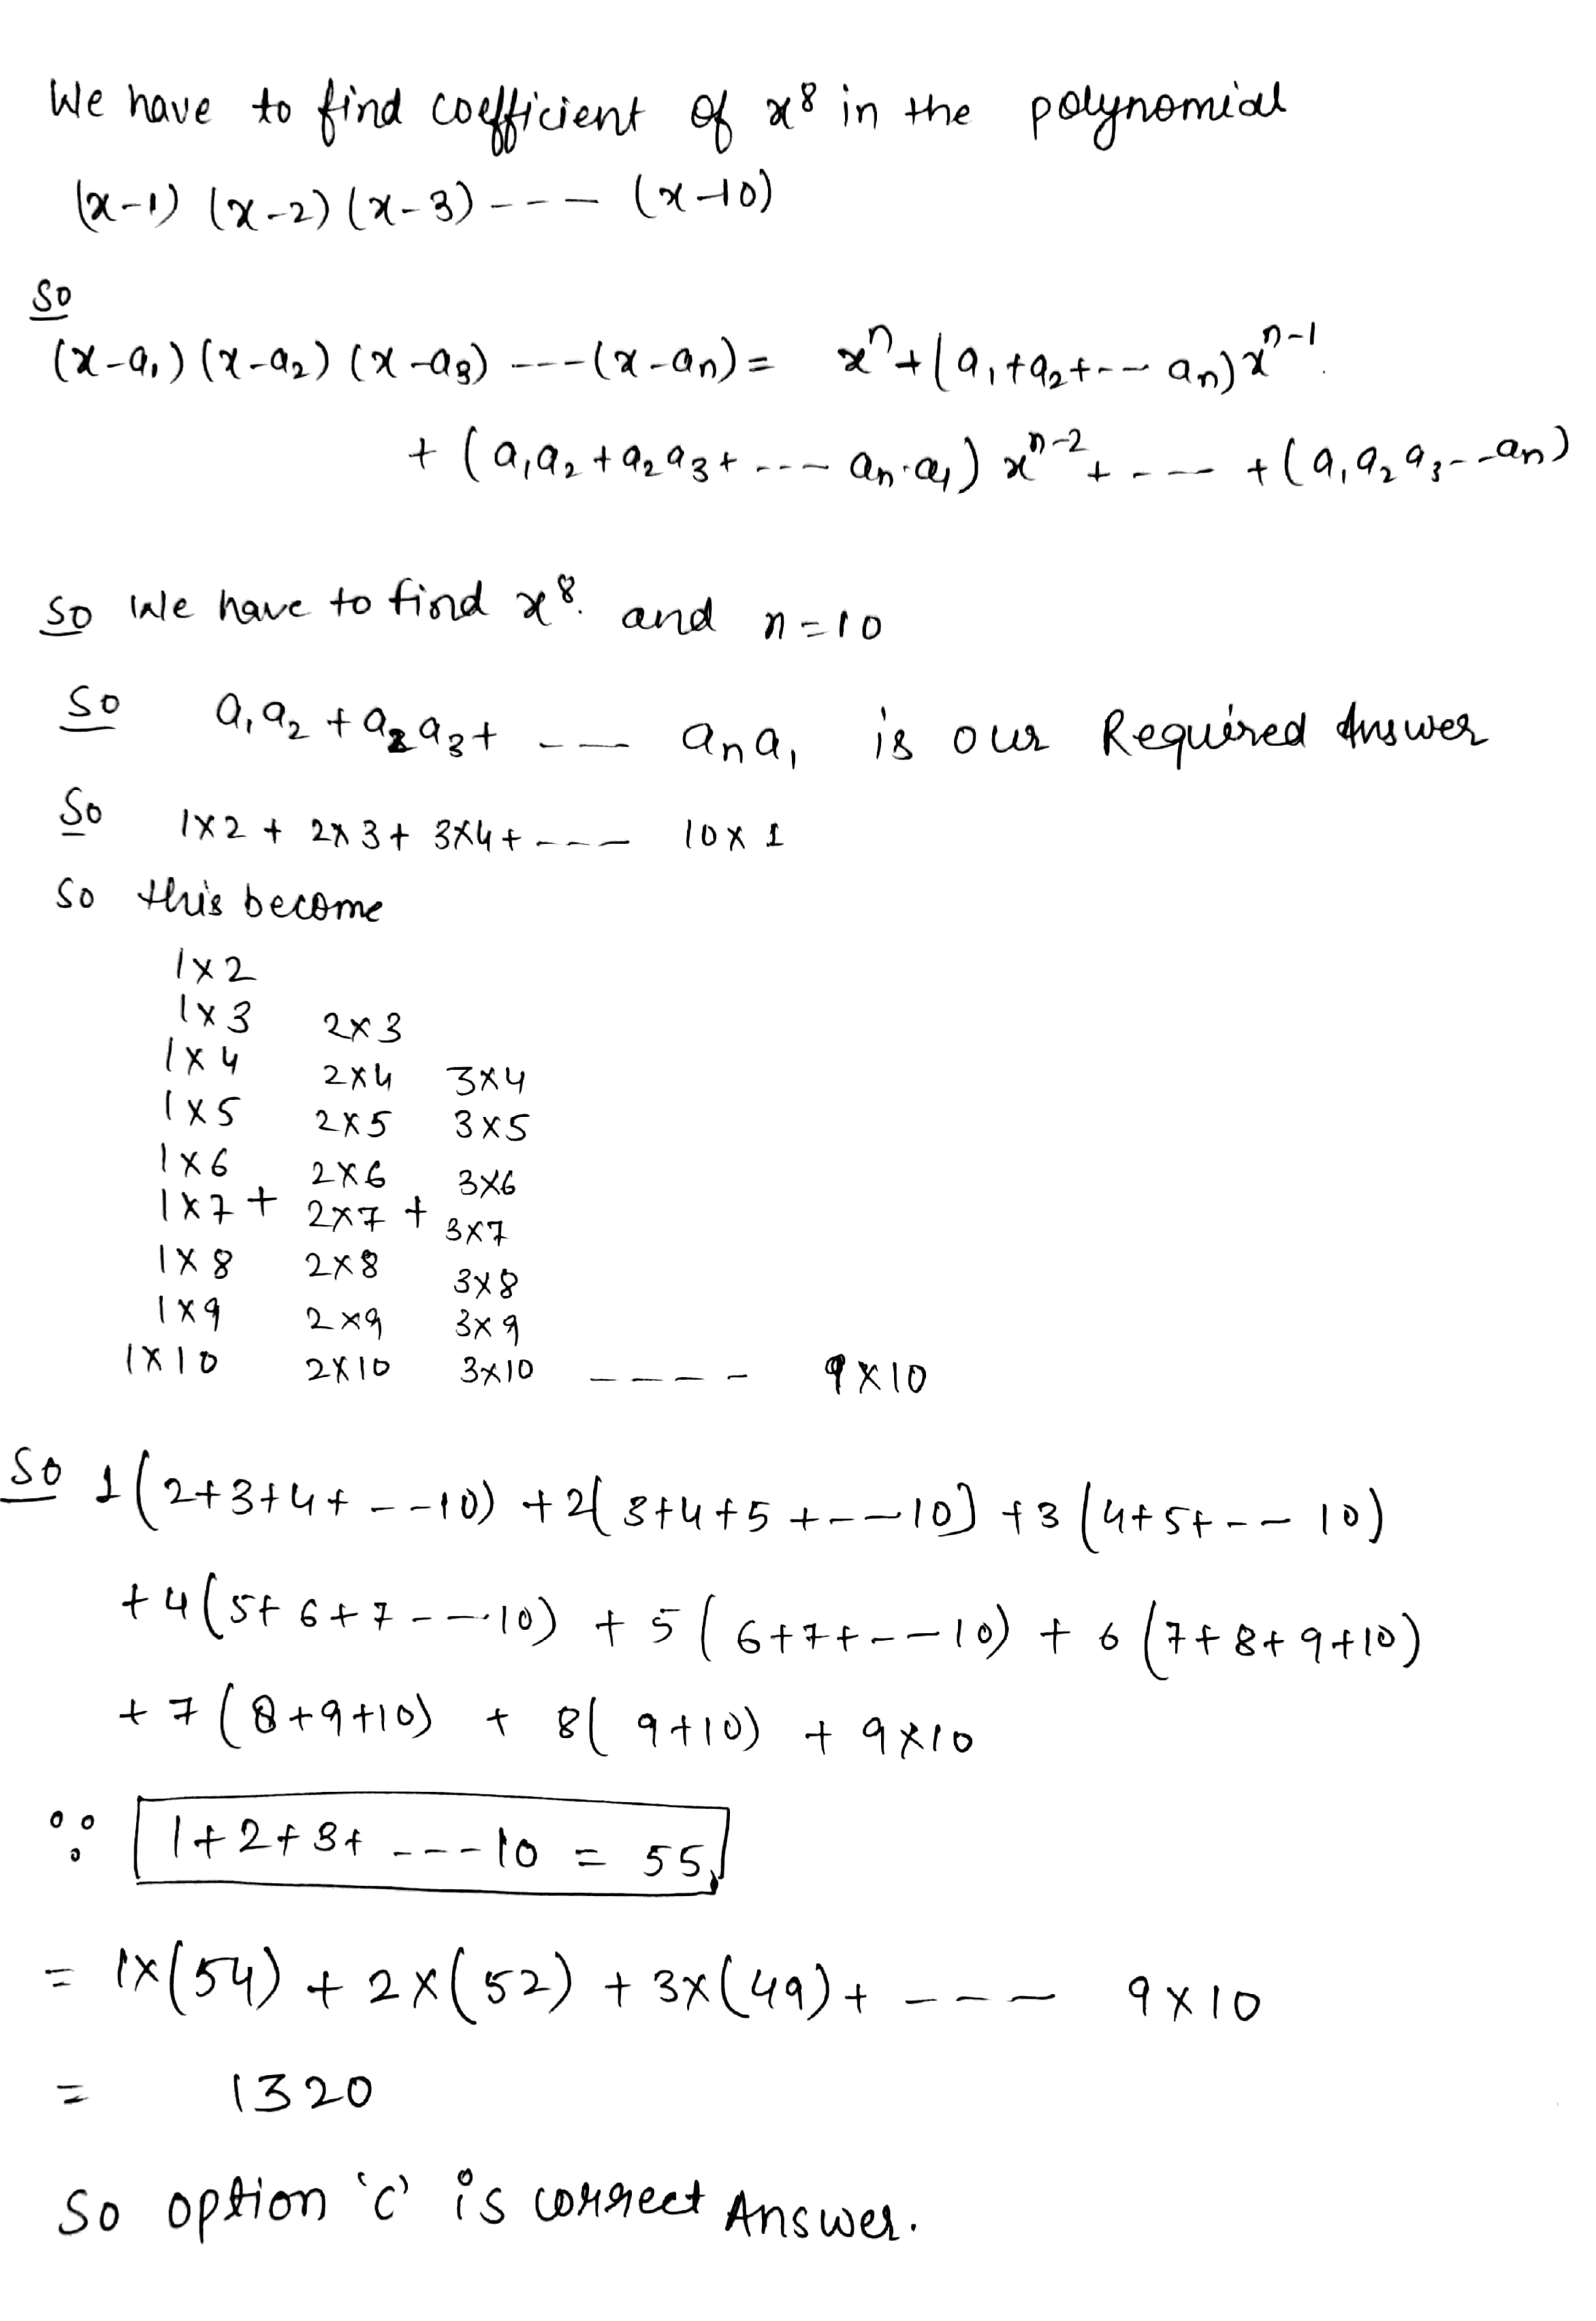 We have to find coefficient of x⁸ in the polynomial
(x-1) (x-2) (x-3) ---- (x-10)
so
(x-a₁) (x-a₂) (x-a₃) ----(x-an) = xⁿ + (a₁+a₂+--- an) xⁿ⁻¹
+ (a₁a₂ + a₂a₃ + ---- an.a₁) xⁿ⁻² + ---- + (a₁a₂a₃---an)
so we have to find x⁸. and n=10
so a₁a₂ + a₂a₃ + --- ana₁ is our Required Answer
So 1×2 + 2×3 + 3×4 + ---- 10×1
so this become
1×2
1×3 2×3
1×4 2×4 3×4
1×5 2×5 3×5
1×6 2×6 3×6
1×7 + 2×7 + 3×7
1×8 2×8 3×8
1×9 2×9 3×9
1×10 2×10 3×10 ----- 9×10
so 1(2+3+4+---10) + 2(3+4+5+---10) + 3(4+5+--10)
+4(5+6+7---10) + 5(6+7+---10) + 6(7+8+9+10)
+7(8+9+10) + 8(9+10) + 9×10
∵ 1+2+3+ ----10 = 55
= 1×(54) + 2×(52) + 3×(49) + ---- 9×10
= 1320
so option 'c' is correct Answer.